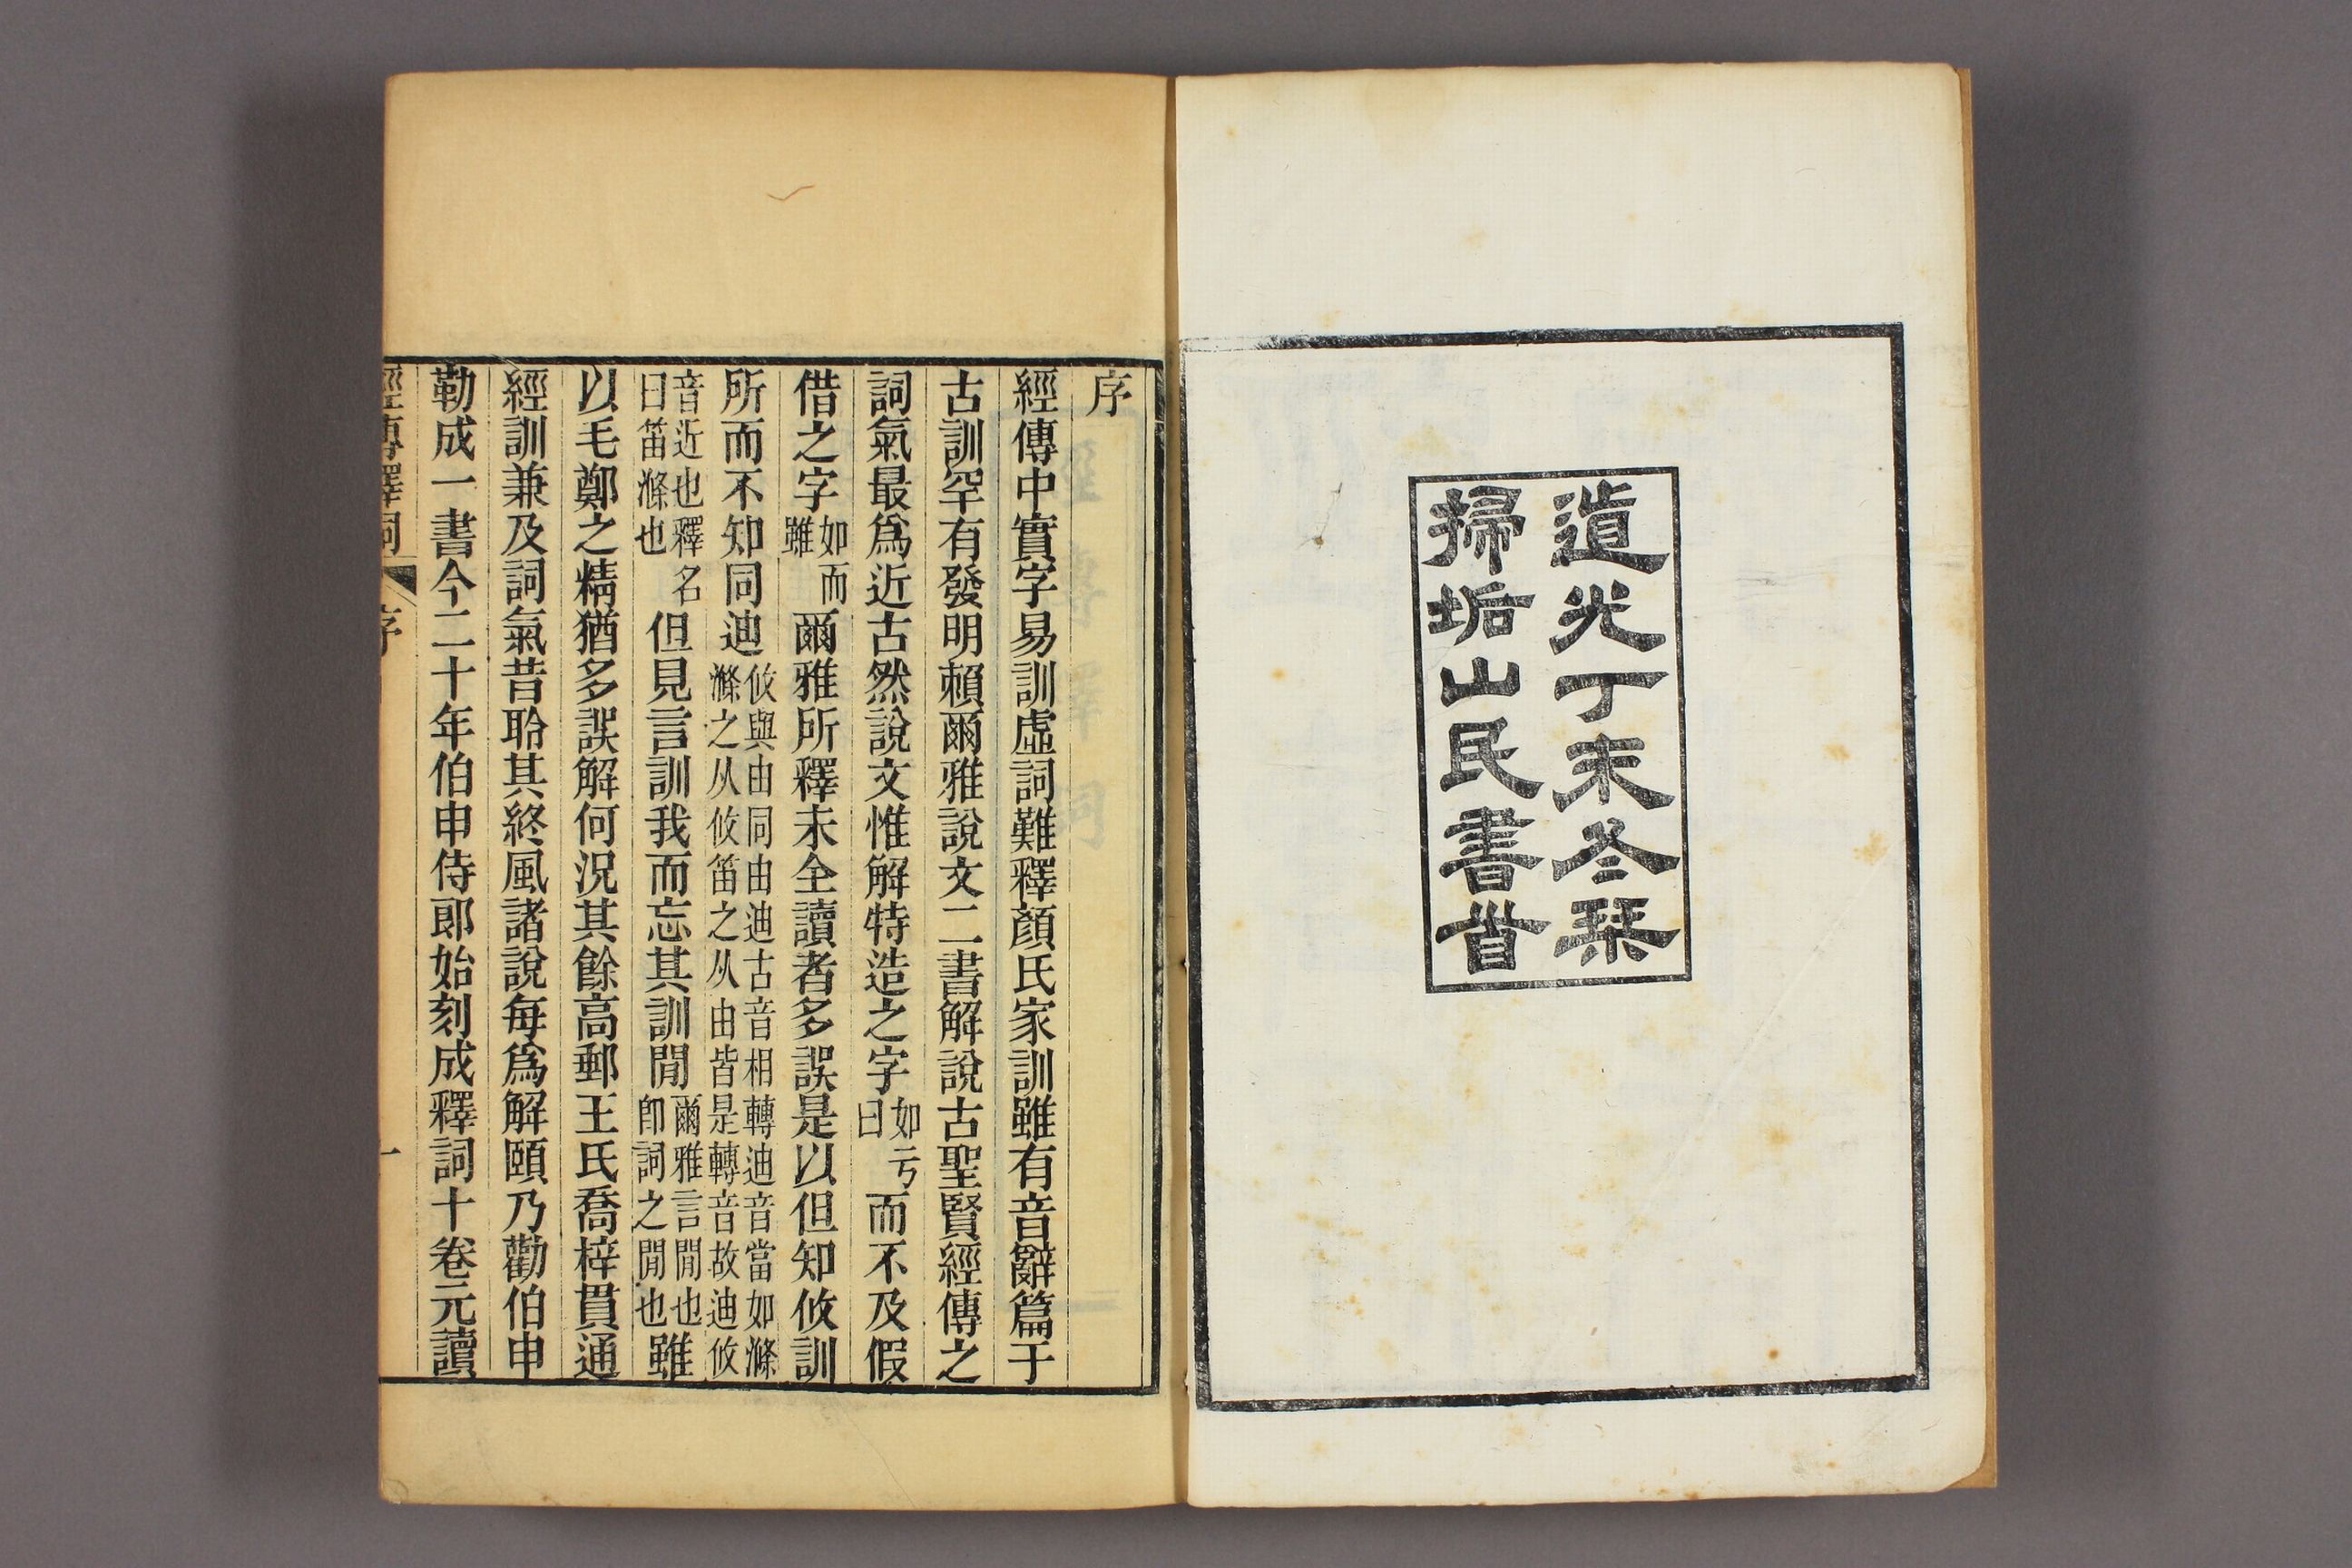 道光丁未冬琹
掃垢山民書首
序
經傳中實字易訓虛詞難釋顏氏家訓雖有音辭篇于
古訓罕有發明賴爾雅說文二書解說古聖賢經傳之
詞氣最爲近古然說文惟解特造之字如亏曰而不及假
借之字如而雖爾雅所釋未全讀者多誤是以但知攸訓
所而不知同迪攸與由同由迪古音相轉迪音當如滌滌之从攸笛之从由皆是轉音故迪攸
音近也釋名曰笛滌也但見言訓我而忘其訓閒爾雅言閒也卽詞之閒也雖
以毛鄭之精猶多誤解何況其餘高郵王氏喬梓貫通
經訓兼及詞氣昔聆其終風諸說每爲解頤乃勸伯申
勒成一書今二十年伯申侍郎始刻成釋詞十卷元讀
經傳釋詞 序 一